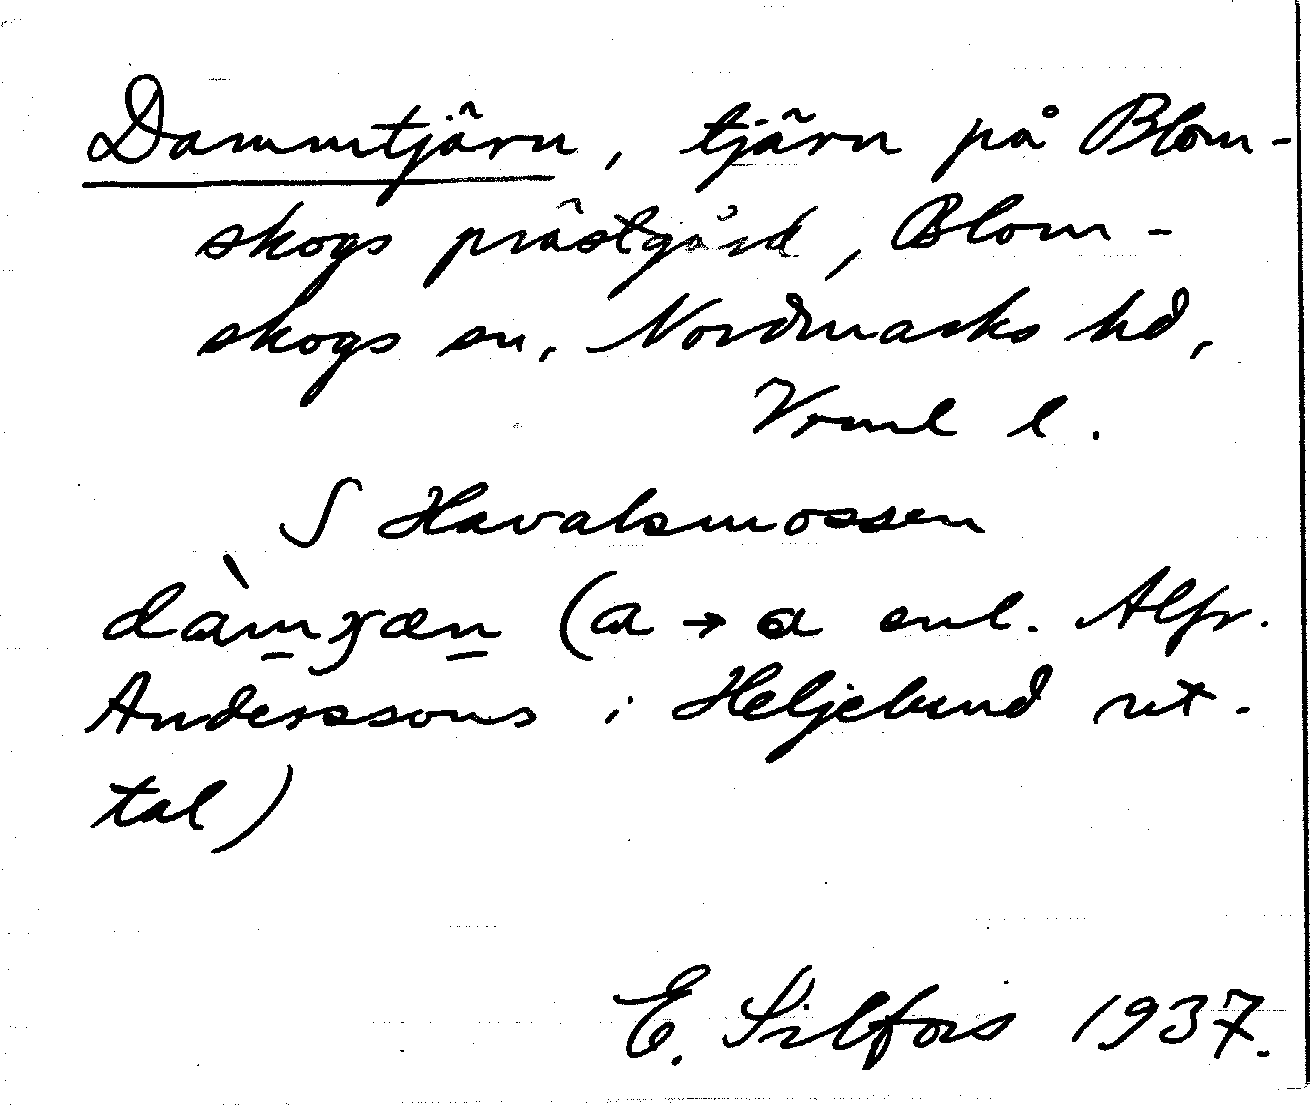 Dammtjärn, tjärn på Blom-
skogs prästgård, Blom-
skogs sn, Nordmarks hd,
Vrml l.
S Havalsmossen
dàmχæn (a → ɑ enl. Alfr.
Anderssons i Heljebund ut-
tal)
E. Silfors 1937.